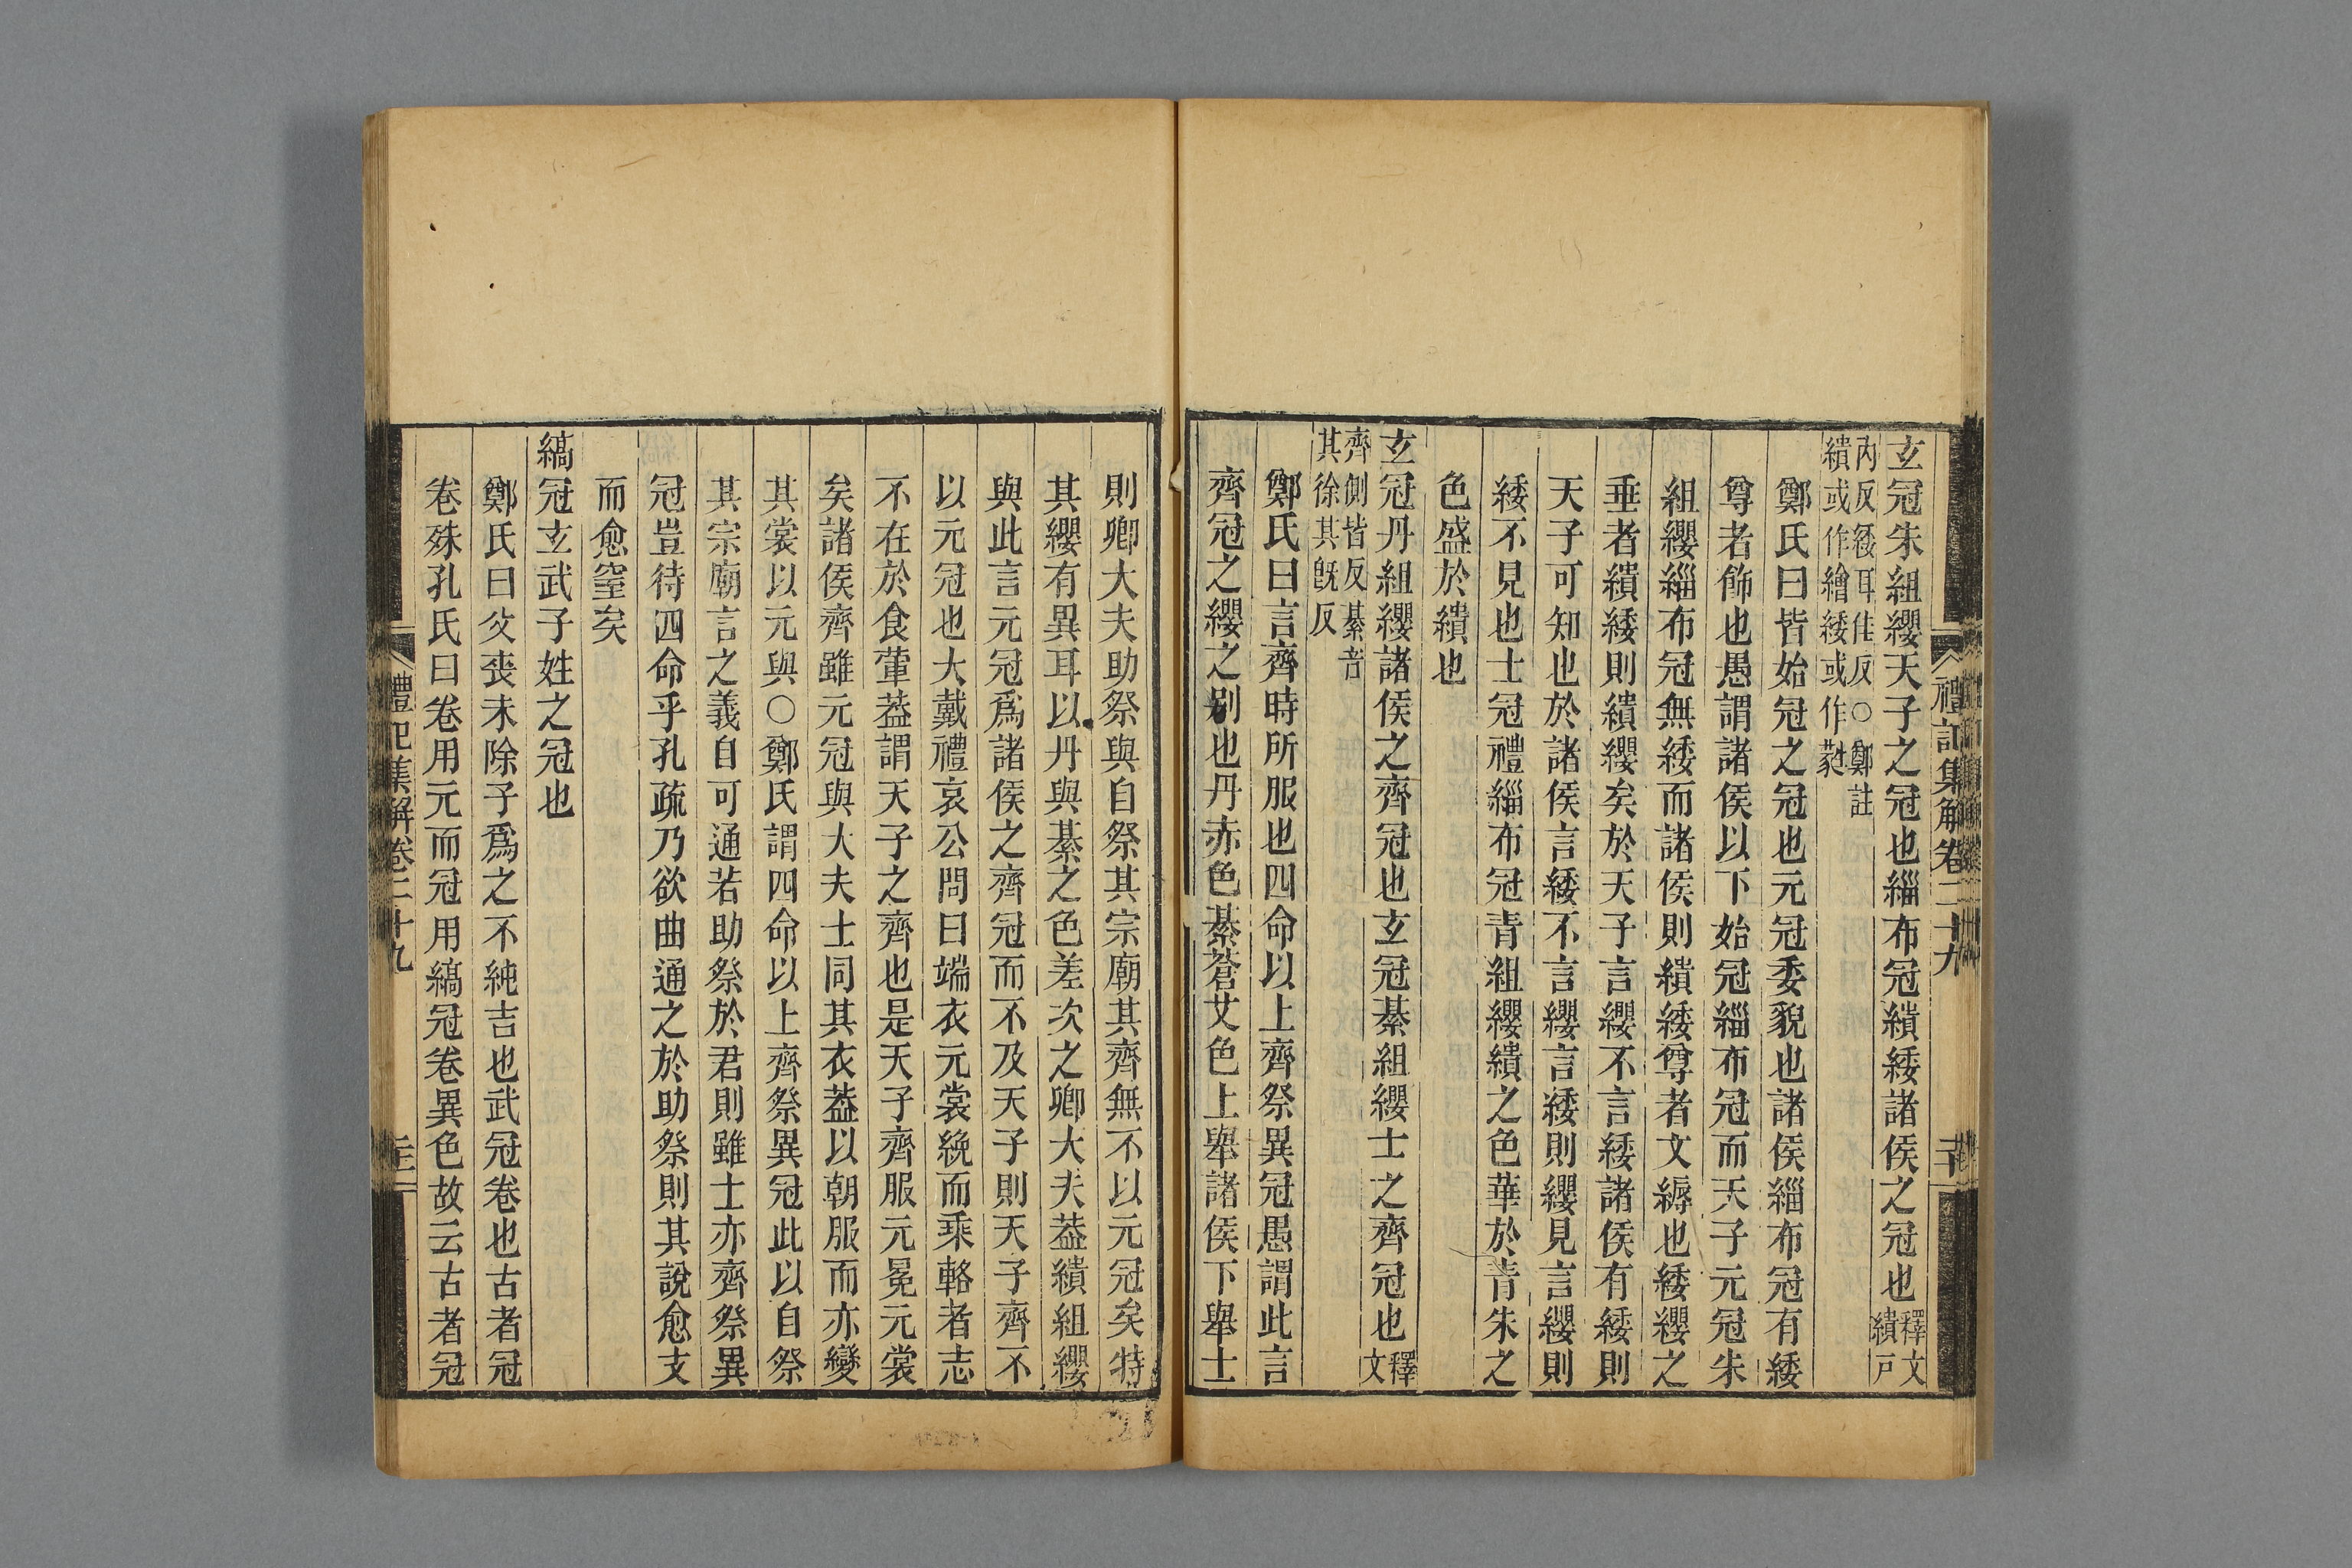 禮記集解卷二十九
玄冠朱組纓天子之冠也緇布冠繢緌諸侯之冠也釋文繢戸
內反緌耳隹反○鄭註繢或作繪緌或作蕤
鄭氏曰皆始冠之冠也元冠委貌也諸侯緇布冠有緌
尊者飾也愚謂諸侯以下始冠緇布冠而天子元冠朱
組纓緇布冠無緌而諸侯則繢緌尊者文縟也緌纓之
垂者繢緌則繢纓矣於天子言纓不言緌諸侯有緌則
天子可知也於諸侯言緌不言纓言緌則纓見言纓則
緌不見也士冠禮緇布冠青組纓繢之色華於青朱之
色盛於繢也
玄冠丹組纓諸侯之齊冠也玄冠綦組纓士之齊冠也釋文
齊側皆反綦音其徐其旣反
鄭氏曰言齊時所服也四命以上齊祭異冠愚謂此言
齊冠之纓之别也丹赤色綦蒼艾色上舉諸侯下舉士
則卿大夫助祭與自祭其宗廟其齊無不以元冠矣特
其纓有異耳以丹與綦之色差次之卿大夫葢繢組纓
與此言元冠爲諸侯之齊冠而不及天子則天子齊不
以元冠也大戴禮哀公問曰端衣元裳絻而乘輅者志
不在於食葷葢謂天子之齊也是天子齊服元冕元裳
矣諸侯齊雖元冠與大夫士同其衣葢以朝服而亦變
其裳以元與○鄭氏謂四命以上齊祭異冠此以自祭
其宗廟言之義自可通若助祭於君則雖士亦齊祭異
冠豈待四命乎孔疏乃欲曲通之於助祭則其說愈支
而愈窒矣
縞冠玄武子姓之冠也
鄭氏曰父喪未除子爲之不純吉也武冠卷也古者冠
卷殊孔氏曰卷用元而冠用縞冠卷異色故云古者冠
禮記集解卷二十九